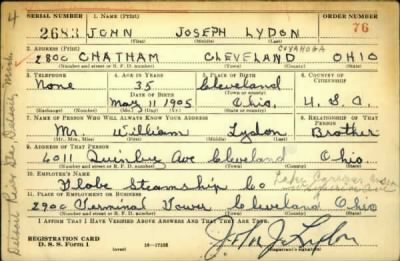 SERIAL NUMBER 1. NAME (Print) ORDER NUMBER
2683 JOHN JOSEPH LYDON 76
(First) (Middle) (Last)
2. ADDRESS (Print) CUYAHOGA
2800 CHATHAM CLEVELAND OHIO
(Number and street or R. F. D. number) (Town) (County) (State)
3. TELEPHONE 4. AGE IN YEARS 5. PLACE OF BIRTH 6. COUNTRY OF CITIZENSHIP
None 35 Cleveland
DATE OF BIRTH
May 11 1905 Ohio U. S. A.
(Exchange) (Number) (Mo.) (Day) (Yr.) (State or country)
7. NAME OF PERSON WHO WILL ALWAYS KNOW YOUR ADDRESS 8. RELATIONSHIP OF THAT PERSON
Mr. William Lydon Brother
(Mr., Mrs., Miss) (First) (Middle) (Last)
9. ADDRESS OF THAT PERSON
6011 Ave Cleveland Ohio
(Number and street or R. F. D. number) (Town) (County) (State)
10. EMPLOYER'S NAME
Globe Steamship Co
11. PLACE OF EMPLOYMENT OR BUSINESS
2900 Terminal Tower Cleveland Ohio
(Number and street or R. F. D. number) (Town) (County) (State)
I AFFIRM THAT I HAVE VERIFIED ABOVE ANSWERS AND THAT THEY ARE TRUE.
REGISTRATION CARD
D. S. S. Form 1 16-17105
John J. Lydon